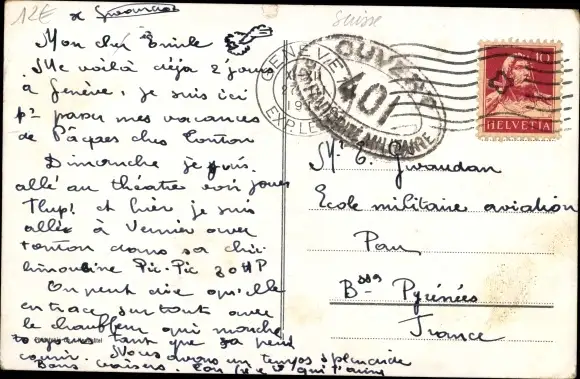 12€
Suisse
Mon cher Emile
Me voilà déja 2 jours
à Genève, je suis ici
pr passer mes vacances
de Pâques chez tonton
Dimanche je suis
allé au théatre voir jouer
et hier je suis
allé à Vernier avec
tonton dans sa chic
limousine Pic-Pic 30 HP
On peut dire qu'elle
en trace surtout avec
le chauffeur qui
toujours tant que sa peut
courir. Nous avons un temps splendide
Bons baisers. qui t'aime
GENÈVE
EXP. LE
OUVERT
PAR L'AUTORITÉ MILITAIRE
401
10
HELVETIA
Mr E. Gwaudan
Ecole militaire aviation
Pau
Bsses Pyrénées
France